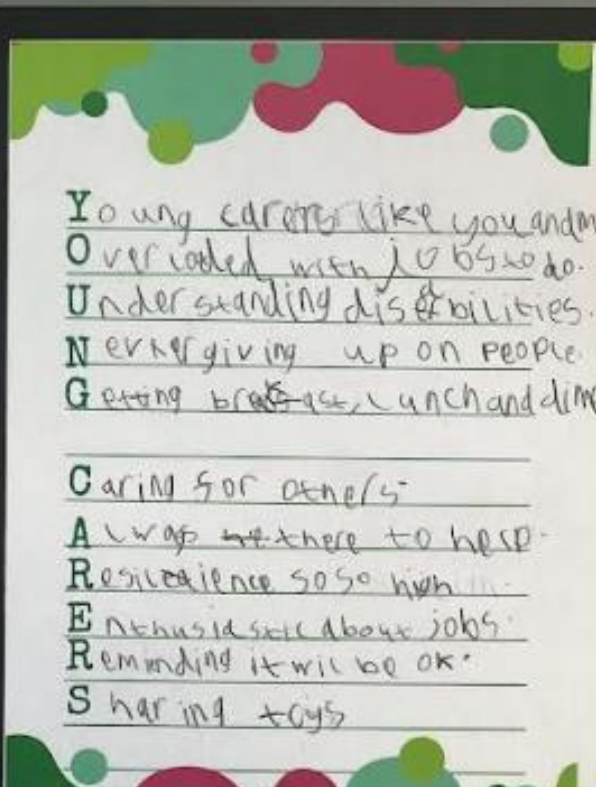 Young carers like you and m
Overloaded with jobs to do.
Understanding disabilities.
Never giving up on people.
Getting breakfast, lunch and dinn
Caring for others.
Always there to help.
Resilience so so high
Enthusiastic about jobs.
Reminding it wil be ok.
Sharing toys